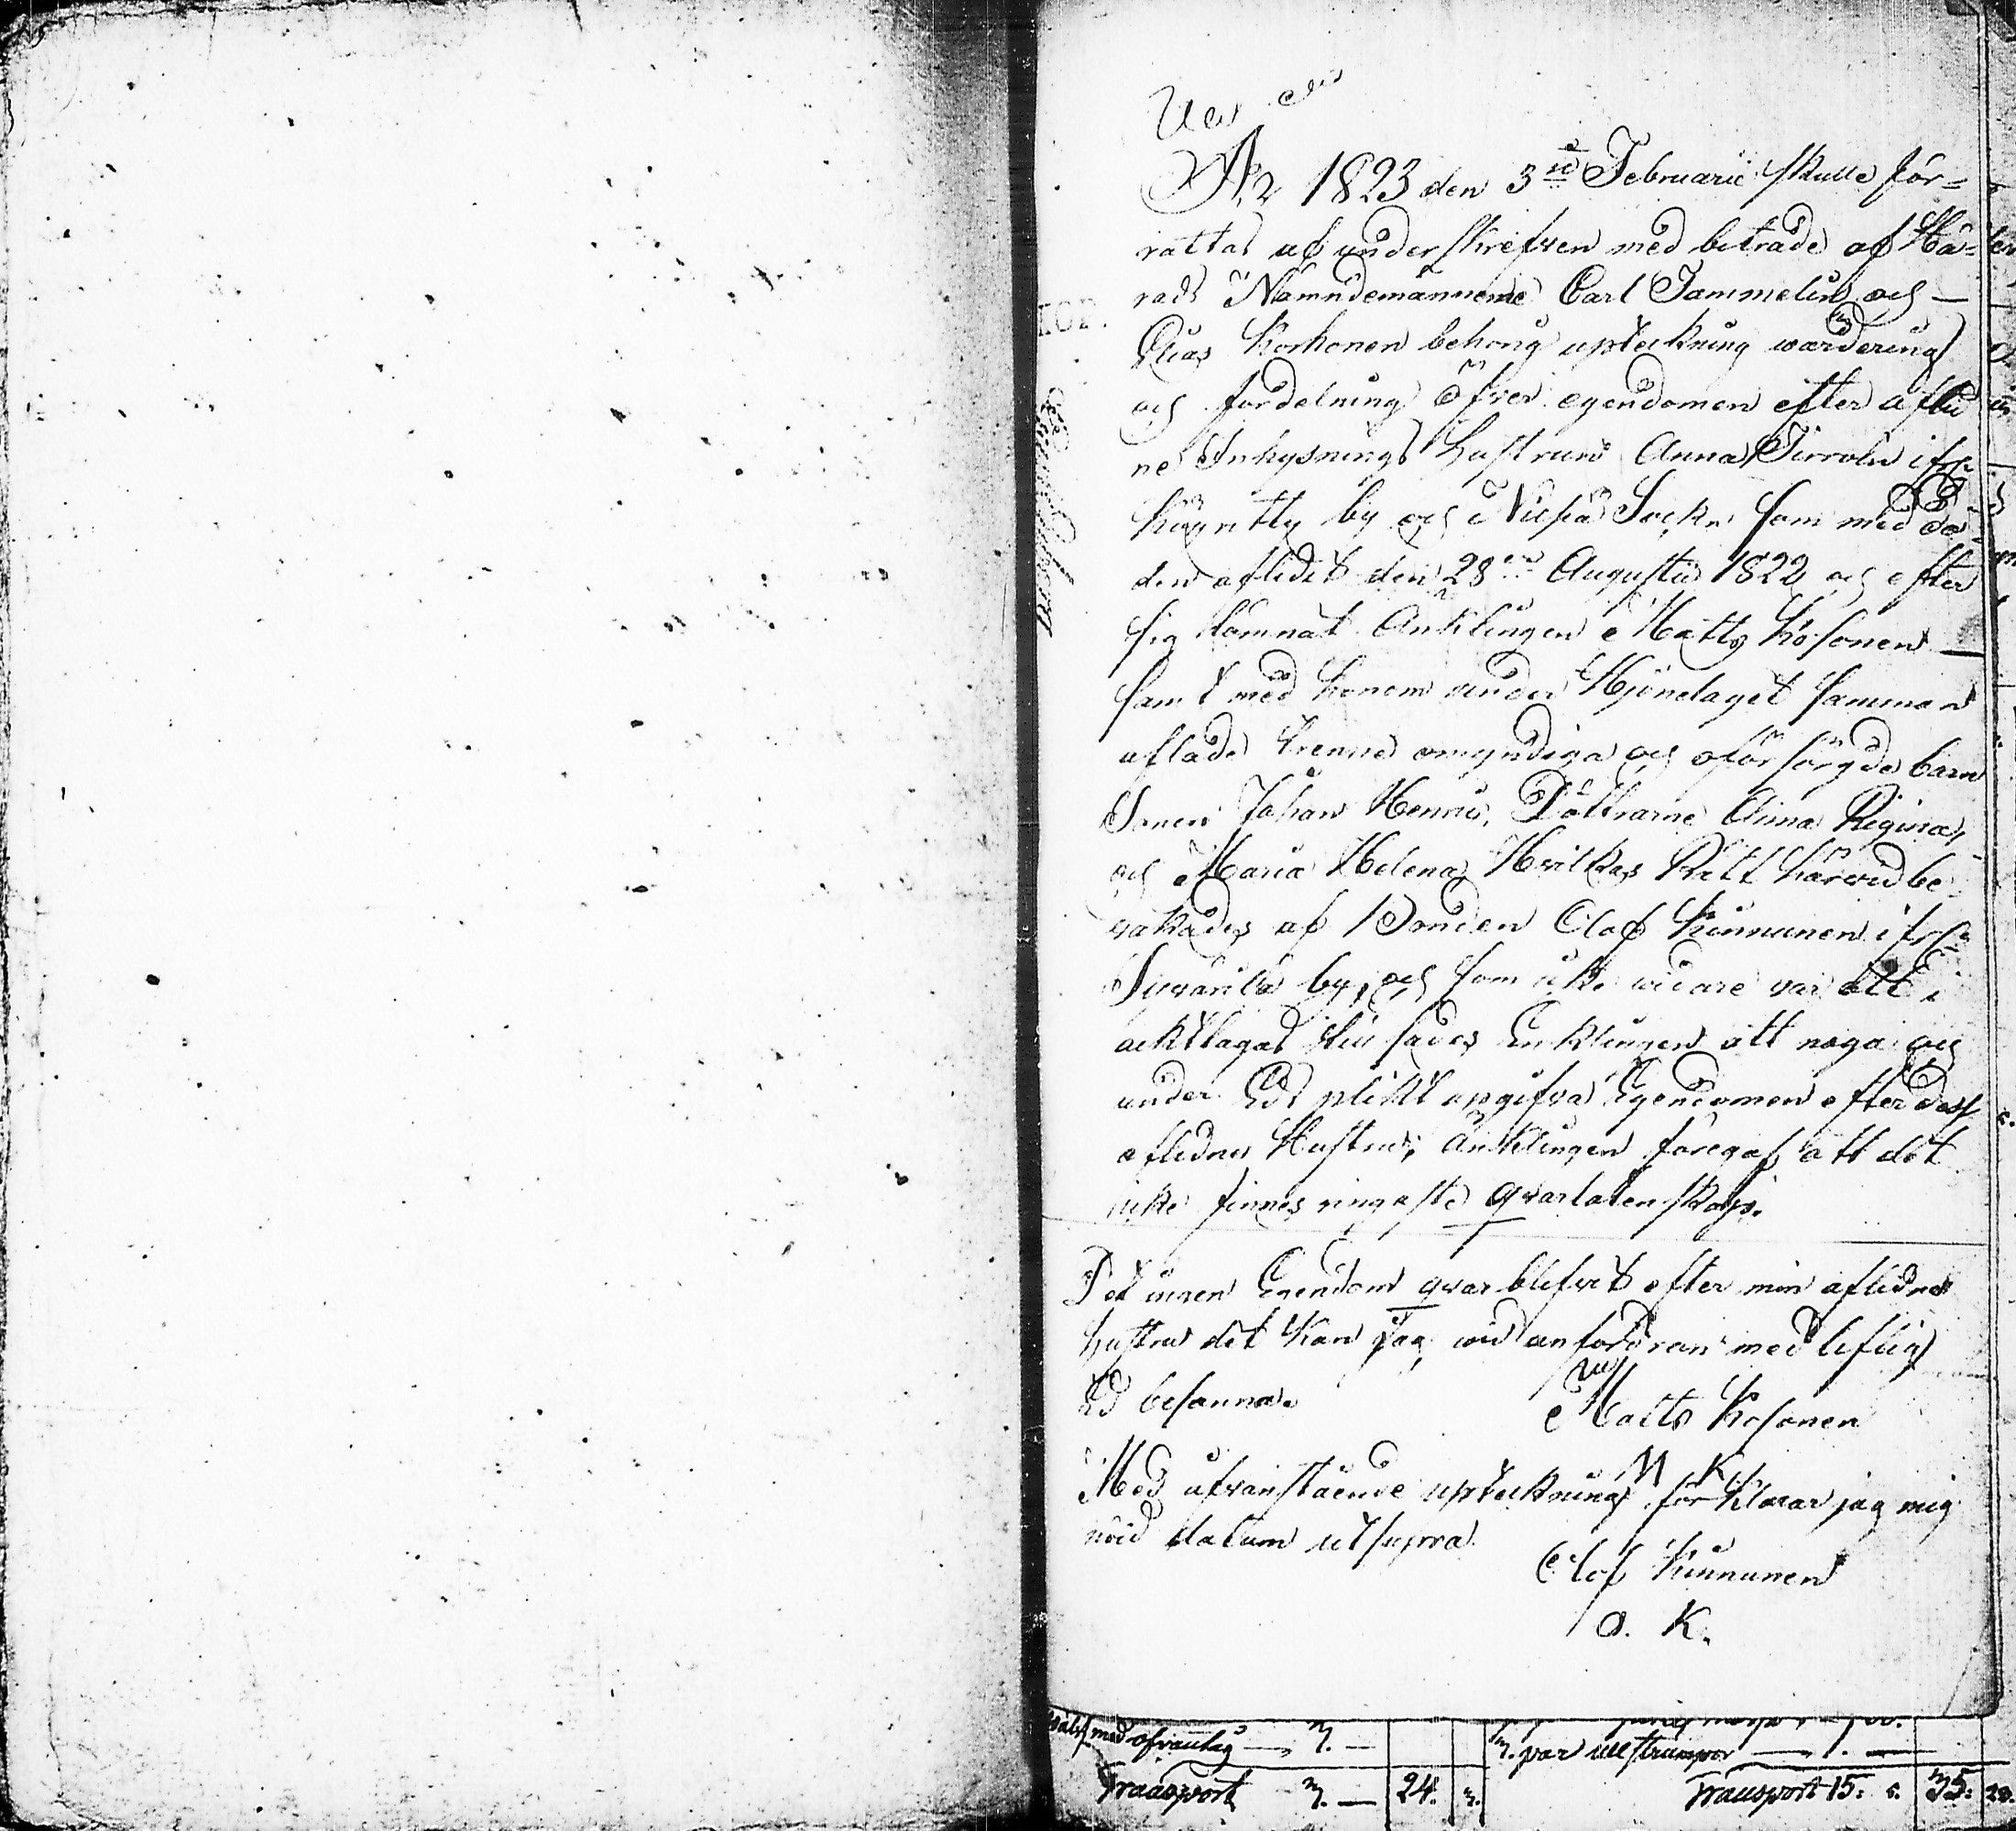 År 1823 den 3de Februarii skulle för=
rättas af underskrefven med beträde af Hä=
rads Nämndemännerne Carl Tammelin och
Elias Korhonen behörig upteckning wärdering
och fördelning öfver egendomen efter aflid
ne Inhysnings hustrun Anna Tirroln ifrån
Köyntty by och Nilsiä Sockn som med Dö
den aflidit den 28de Augustii 1822 och efter
sig lämnat Änklingen Matts Kosonen
samt med honom under Hjonelaget samman
aflade trenne omyndiga och oförsörgde barn
Sonen Johan Henric, Döttrarne Anna Regina,
och Maria Helena, Hvilkas Rätt härvid be
vakades af Bonden Olof Kinnunen ifrån
Syvänilä by, och som icke vidare var att i
akttaga tillsades Enklingen att noga och
under Eds plikt upgifva Egendomen efter dess
aflidne Hustru; Änklingen föregaf att det
icke finnes ringaste qvarlåtenskap.
Det ingen Egendom qvarblifvit efter min aflidne
hustru det kan jag vid anfordran med liflig
Ed besanna.
Matts Kosonen
M K
Med ofvanstående upteckning förklarar jag mig
nöid datum utsupra
Olof Kinnunen
O. K.
med ofvanlag — 3. —
3. par ullstrumpor — 1. —
Transport 3. — 24. 3.
Transport 15: 6. 35: 20.